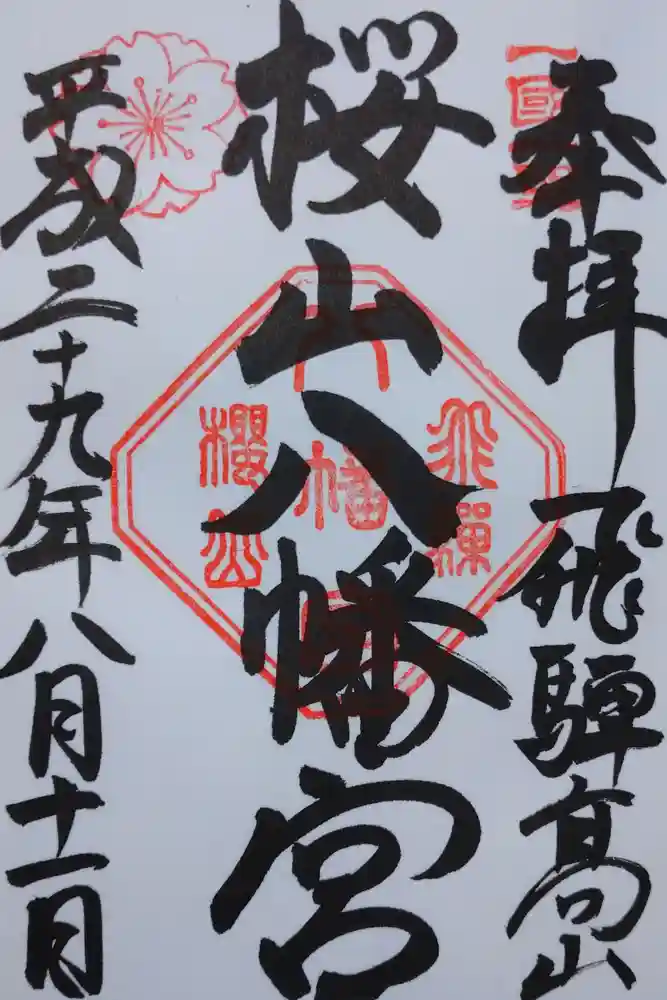 奉拝 飛騨高山
桜山八幡宮
平成二十九年八月十一日
飛騨
八幡
櫻山